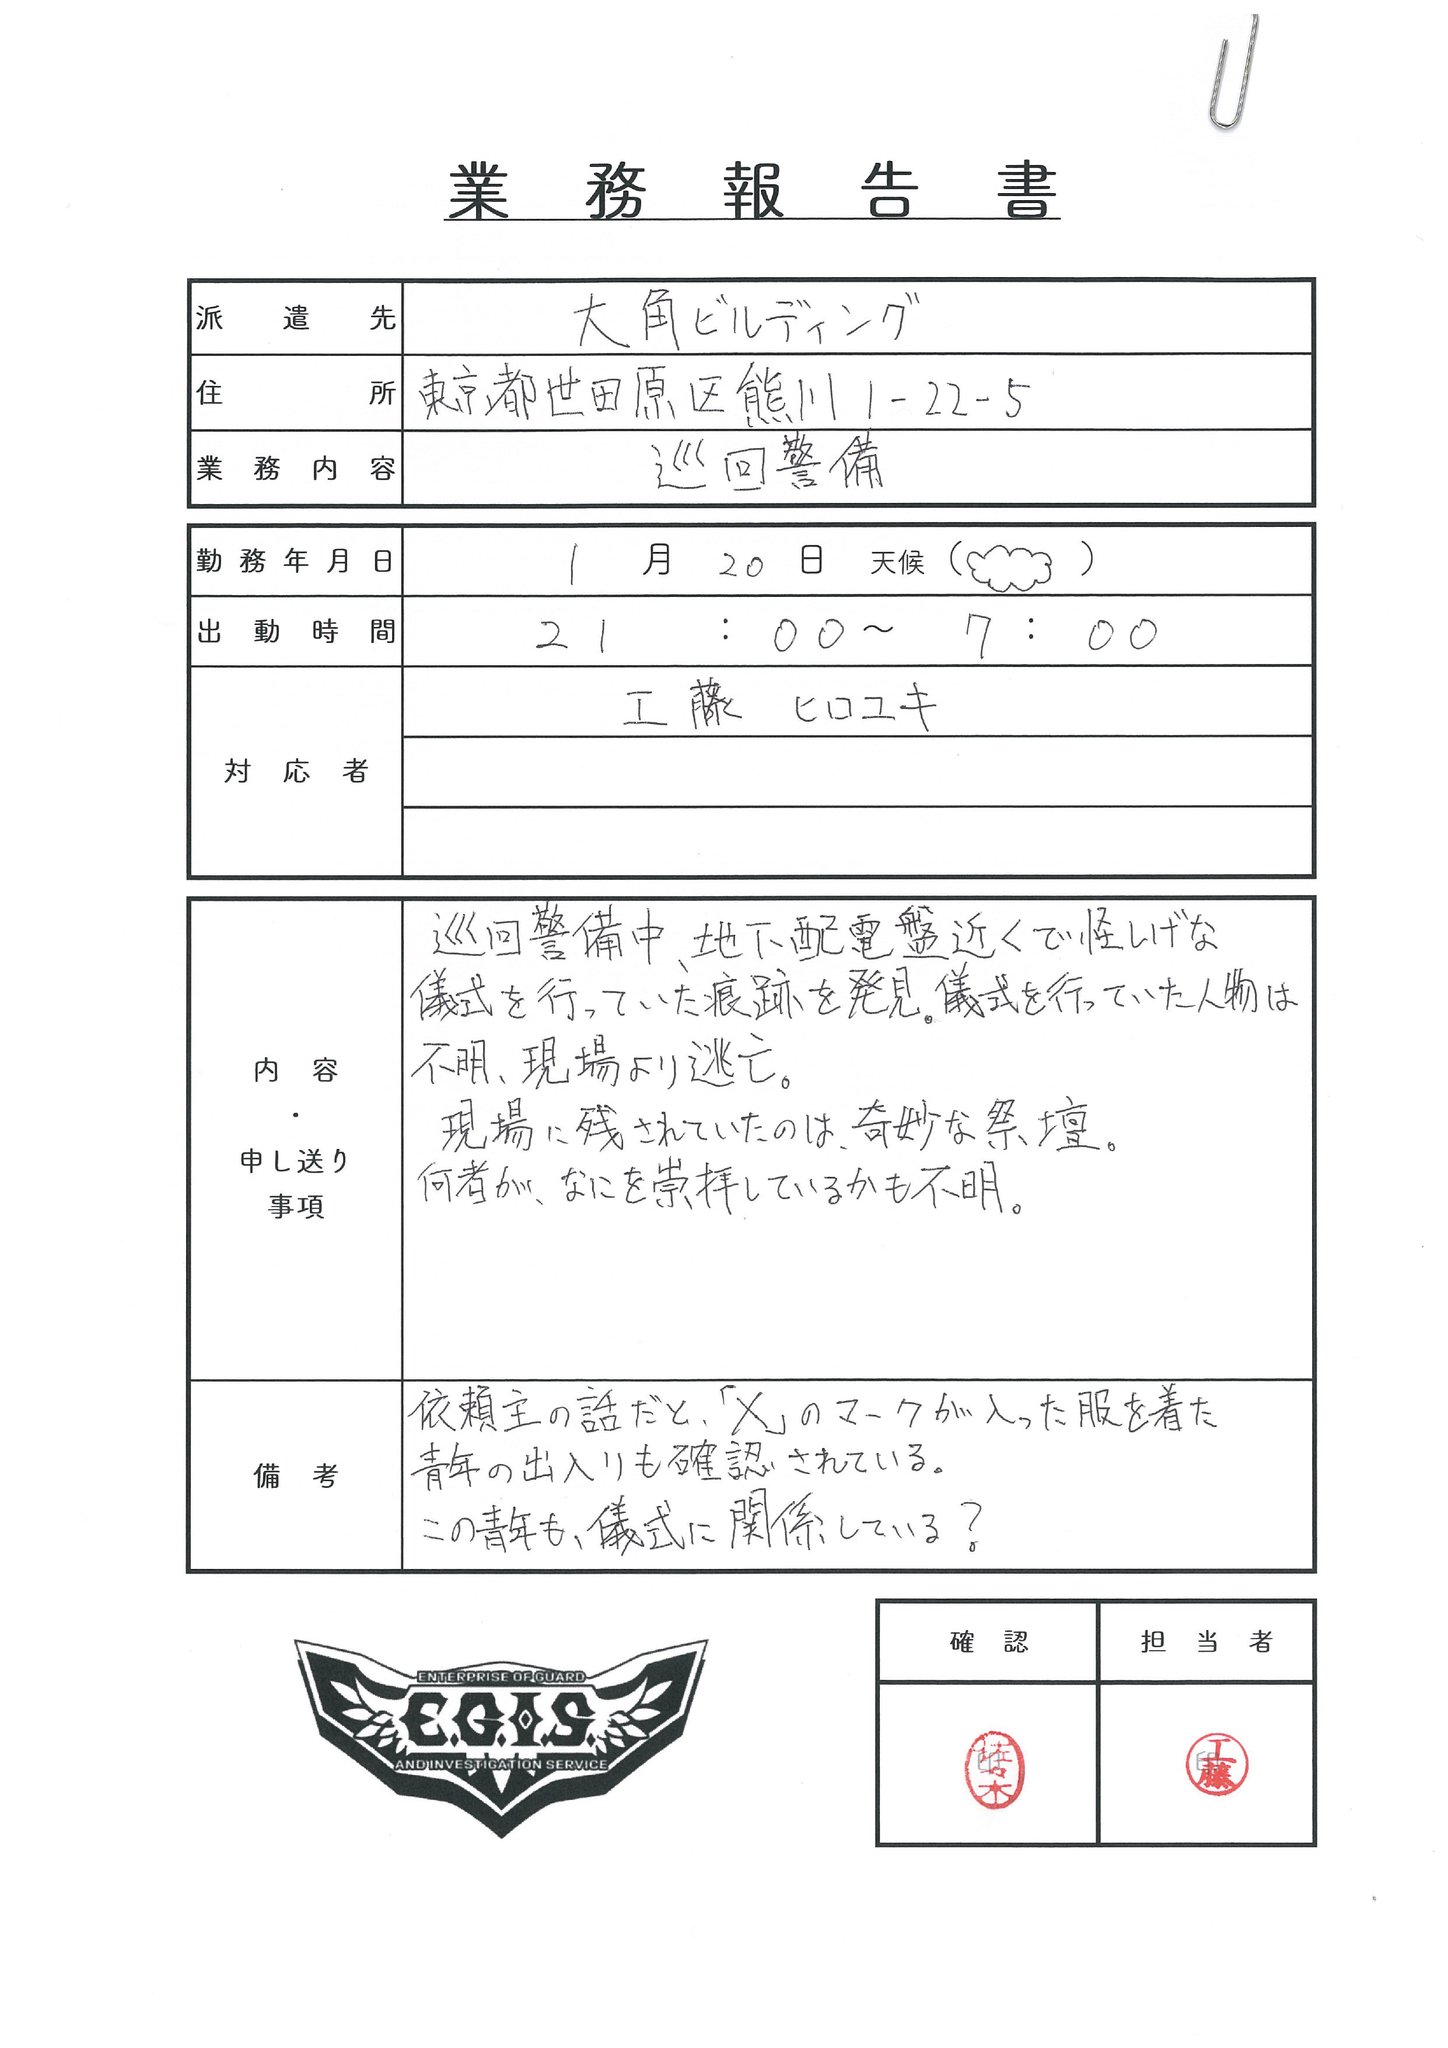 業務報告書
派遣先 大角ビルディング
住所 東京都世田原区熊川1-22-5
業務内容 巡回警備
勤務年月日 1月20日 天候( )
出動時間 21:00~7:00
対応者 工藤 ヒロユキ
内容・申し送り事項
巡回警備中、地下配電盤近くで怪しげな
儀式を行っていた痕跡を発見。儀式を行っていた人物は
不明、現場より逃亡。
現場に残されていたのは、奇妙な祭壇。
何者が、なにを崇拝しているかも不明。
備考
依頼主の話だと、「X」のマークが入った服を着た
青年の出入りも確認されている。
この青年も、儀式に関係している?
ENTERPRISE OF GUARD
E.G.I.S.
AND INVESTIGATION SERVICE
確認 担当者
印 工藤